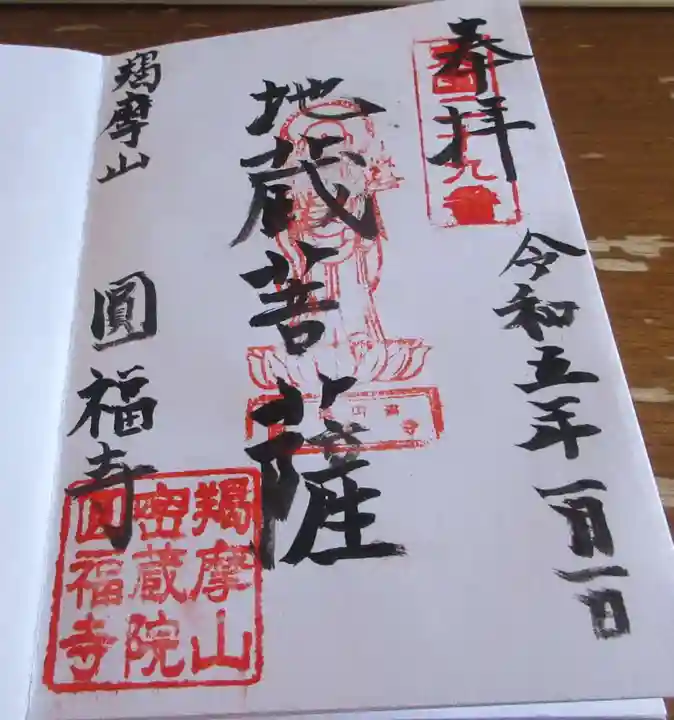 奉拝
令和五年一月一日
地蔵菩薩
羯摩山
圓福寺
羯摩山
密蔵院
圓福寺